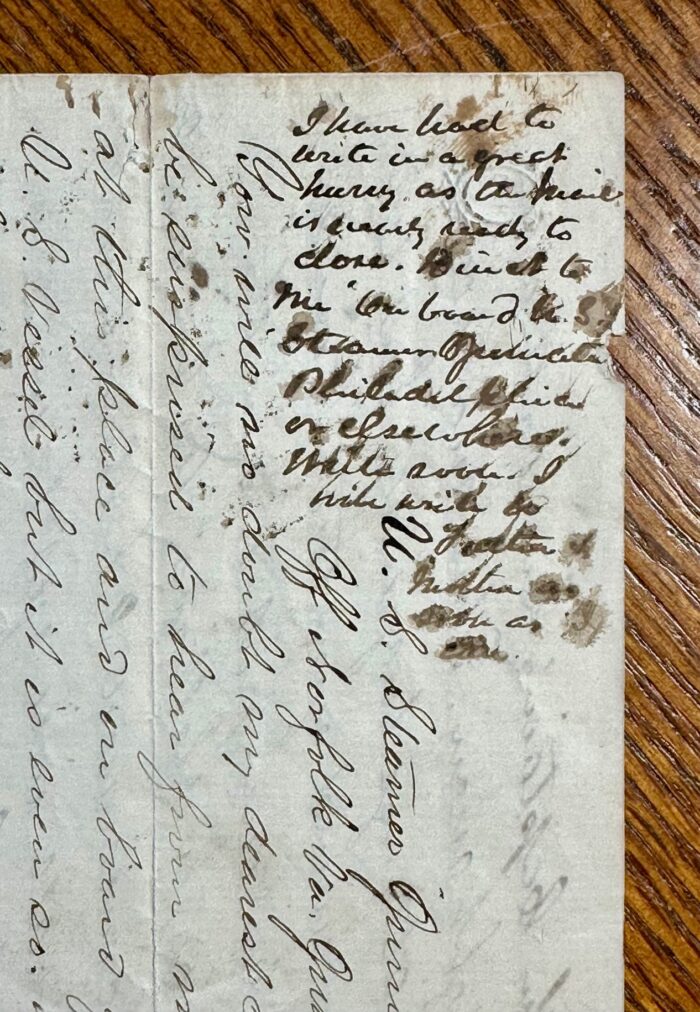 I have had to
write in a great
hurry as the mail
is nearly ready to
close. Direct to
me "on board U. S.
Steamer
Philadelphia
or elsewhere.
Write soon. I
will write to
Father &
Mother as
soon as I
can.
U. S. Steamer
Off Norfolk Va.
You will no doubt my dearest
be surprised to hear from
at this place and on board
U. S. Vessel but it is even so.